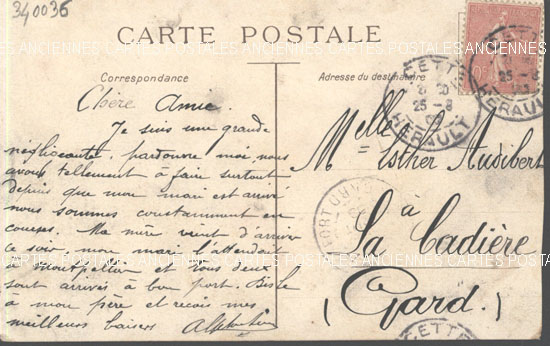 340036
CARTE POSTALE
Correspondance
Adresse du destinataire
Chère Amie.
Je suis une grande
négligeante, pardonne moi, nous
avons tellement à faire surtout
depuis que mon mari est arrivé
nous sommes constamment en
courses. Ma mère vient d'arriver
ce soir, mon mari l'attendait
à Montpellier et tous deux
sont arrivés à bon port. Bise le
à mon père et reçois mes
meilleurs baisers
Melle Esther Audibert
à
La Cadière
(Gard.)
CETTE
25-8
HERAULT
CETTE
25-8
HERAULT
CETTE
ANCIENNES CARTES POSTALES ANCIENNES CARTES POSTALES
ANCIENNES CARTES POSTALES ANCIENNES CARTES POSTALES